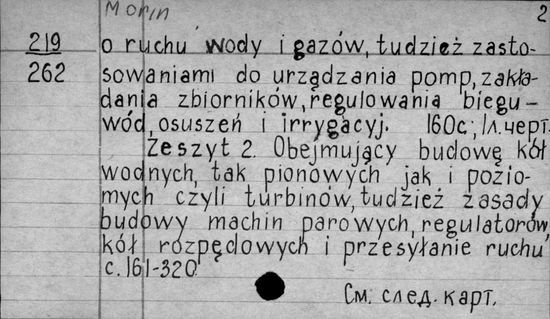 Morin
2
219
262
o ruchu wody i gazów, tudzież zasto-
sowaniami do urządzania pomp, zakła-
dania zbiorników, regulowania biegu-
wód, osuszeń i irrygacyj. 160c; 1л.черт.
Zeszyt 2. Obejmujący budowę kół
wodnych, tak pionowych jak i pozio-
mych czyli turbinów, tudzież zasady
budowy machin parowych, regulatorów,
kół rozpędowych i przesyłanie ruchu
c.161-320
См. след. карт.